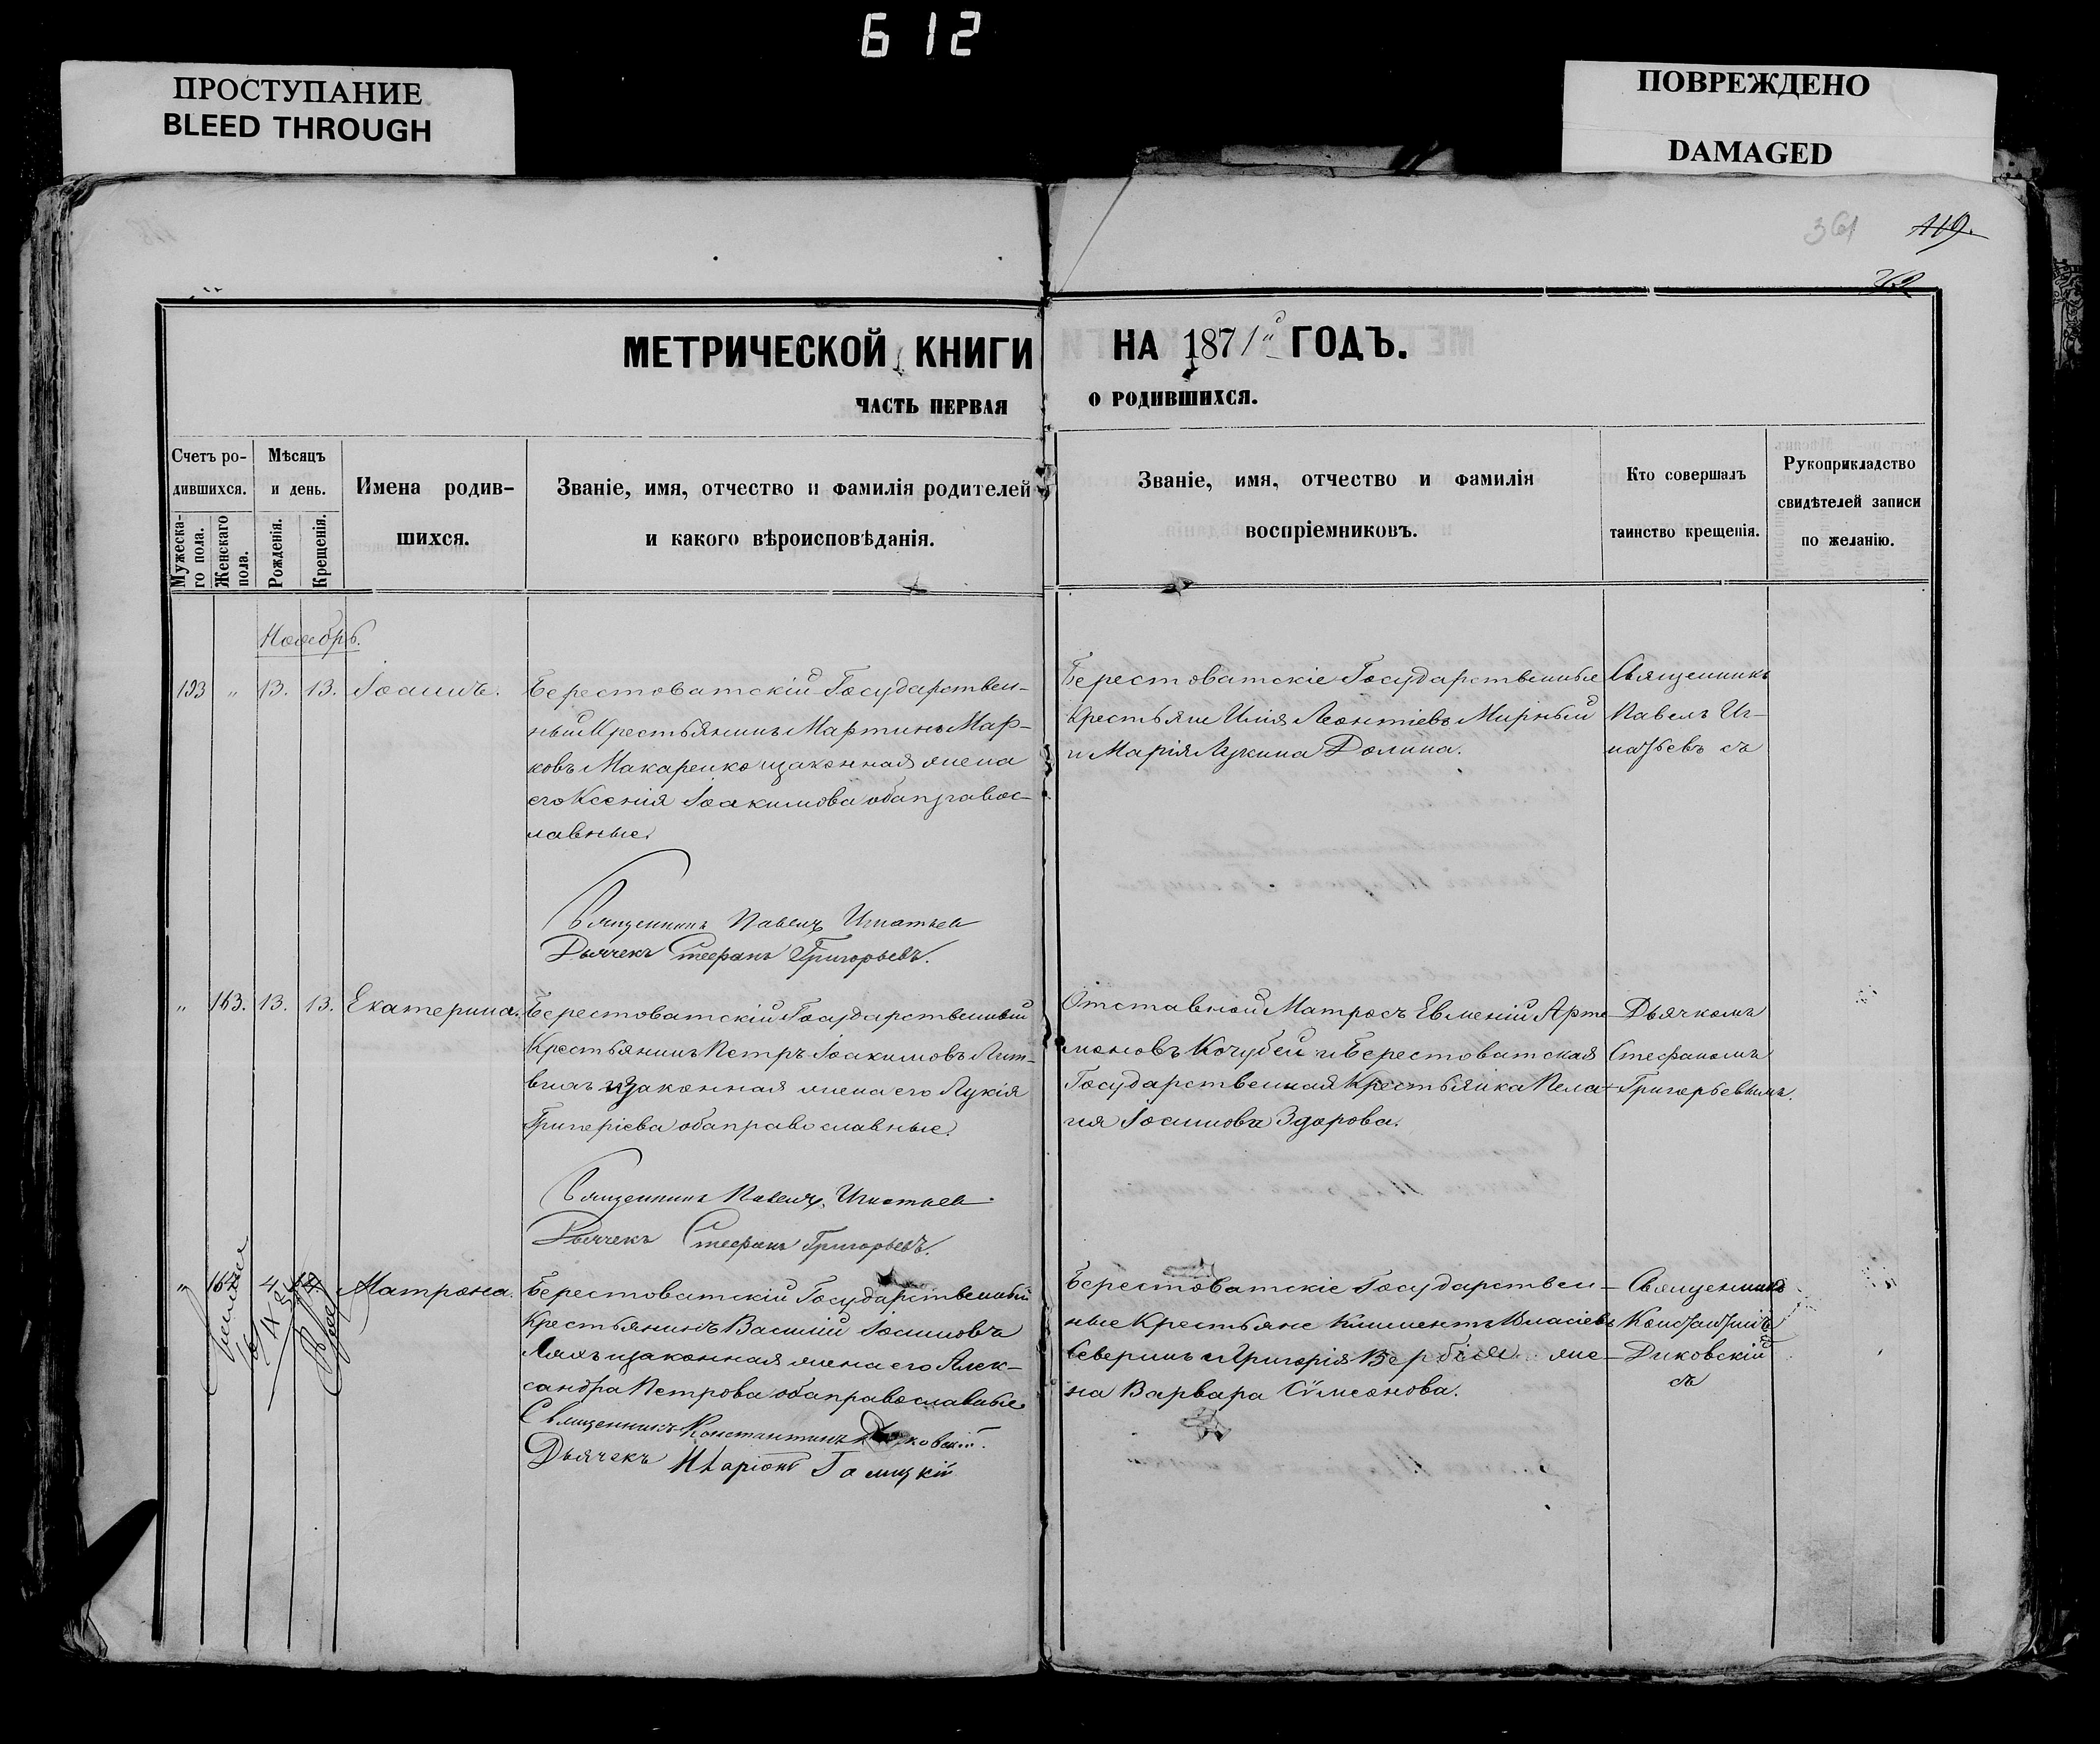 612
ПРОСТУПАНИЕ
BLEED THROUGH
ПОВРЕЖДЕНО
DAMAGED
361
119.
362
МЕТРИЧЕСКОЙ КНИГИ НА 1871й ГОДЪ.
ЧАСТЬ ПЕРВАЯ О РОДИВШИХСЯ.
Счетъ ро-
дившихся.
Мужеска-
го пола.
Женскаго
пола.
Мѣсяцъ
и день.
Рожденія.
Крещенія.
Имена родив-
шихся.
Званіе, имя, отчество и фамилія родителей
и какого вѣроисповѣданія.
Званіе, имя, отчество и фамилія
воспріемниковъ.
Кто совершалъ
таинство крещенія.
Рукоприкладство
свидѣтелей записи
по желанію.
Ноябрь.
193 " 13. 13. Іоаннъ.
Берестоватскій Государствен-
ный Крестьянинъ Мартинъ Мар-
ковъ Макаренко и законная жена
его Ксенія Іоакимова оба правос-
лавные.
Священникъ Павелъ Игнатьев
Дьячекъ Стефанъ Григорьевъ.
Берестоватскіе Государственные
Крестьяне Илія Леонтіевъ Мирный
и Марія Лукина Долина.
Священникъ
Павелъ Иг-
натьевъ съ
" 163. 13. 13. Екатерина.
Берестоватскій Государственный
Крестьянинъ Петръ Іоакимовъ Лит-
винъ и законная жена его Лукія
Григоріева оба православные.
Священникъ Павелъ Игнатьев
Дьячекъ Стефанъ Григорьевъ.
Отставной Матросъ Евменій Арте-
моновъ Кочубей и Берестоватская
Государственная Крестьянка Пела-
гія Іоаннова Здорова.
Дьячкомъ
Стефаномъ
Григорьевымъ.
" 164 4 Матрона.
Берестоватскій Государственный
Крестьянинъ Василій Іоанновъ
Ляхъ и законная жена его Алек-
сандра Петрова оба православные
Священникъ Константинъ Диковскій.
Дьячекъ Иларіонъ Галицкій
Берестоватскіе Государствен-
ные Крестьяне Климентъ Власіевъ
Северинъ и Григорія Вербія же-
на Варвара Сѵмеонова.
Священникъ
Константинъ
Диковскій
съ